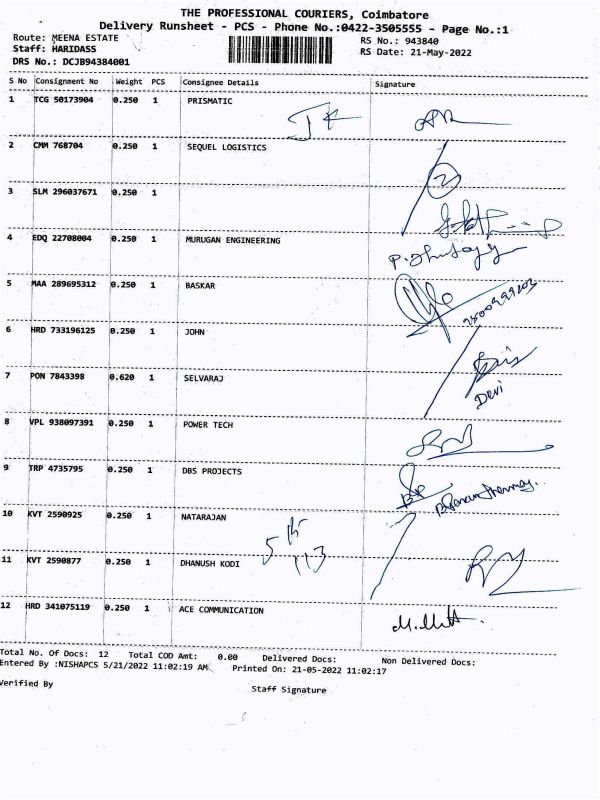 THE PROFESSIONAL COURIERS, Coimbatore
Delivery Runsheet - PCS - Phone No.:0422-3505555 - Page No.:1
Route: MEENA ESTATE RS No.: 943840
Staff: HARIDASS RS Date: 21-May-2022
DRS No.: DCJB94384001
S No Consignment No Weight PCS Consignee Details Signature
1 TCG 50173904 0.250 1 PRISMATIC
2 CMM 768704 0.250 1 SEQUEL LOGISTICS
3 SLM 296037671 0.250 1
4 EDQ 22708004 0.250 1 MURUGAN ENGINEERING
5 MAA 289695312 0.250 1 BASKAR
6 HRD 733196125 0.250 1 JOHN
7 PON 7843398 0.620 1 SELVARAJ
Devi
8 VPL 938097391 0.250 1 POWER TECH
9 TRP 4735795 0.250 1 DBS PROJECTS
10 KVT 2590925 0.250 1 NATARAJAN
11 KVT 2590877 0.250 1 DHANUSH KODI
12 HRD 341075119 0.250 1 ACE COMMUNICATION
Total No. Of Docs: 12 Total COD Amt: 0.00 Delivered Docs: Non Delivered Docs:
Entered By :NISHAPCS 5/21/2022 11:02:19 AM Printed On: 21-05-2022 11:02:17
Verified By Staff Signature